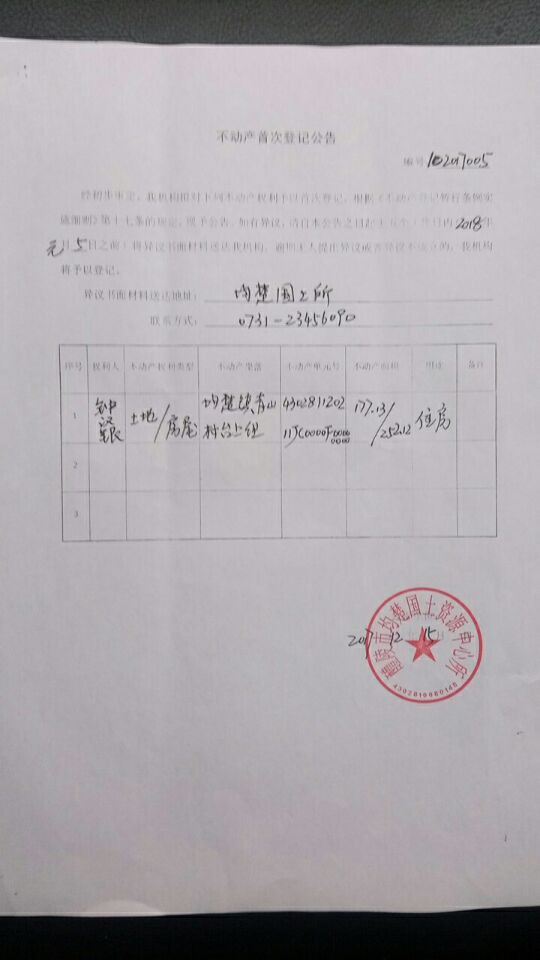 不动产首次登记公告
编号102017005
经初步审定，我机构拟对下列不动产权利予以首次登记，根据《不动产登记暂行条例实
施细则》第十七条的规定，现予公告。如有异议，请自本公告之日起十五个工作日内2018年
元月5日之前）将异议书面材料送达我机构。逾期无人提出异议或者异议不成立的，我机构
将予以登记。
异议书面材料送达地址：均楚国土所
联系方式：0731-23456090
序号 权利人 不动产权利类型 不动产坐落 不动产单元号 不动产面积 用途 备注
1 钟汉银 土地/房屋 均楚镇青山 4302811202 177.13/252.12 住房
村台上组
2
3
2017 12 15日
醴陵市均楚国土资源中心所
4302819980148